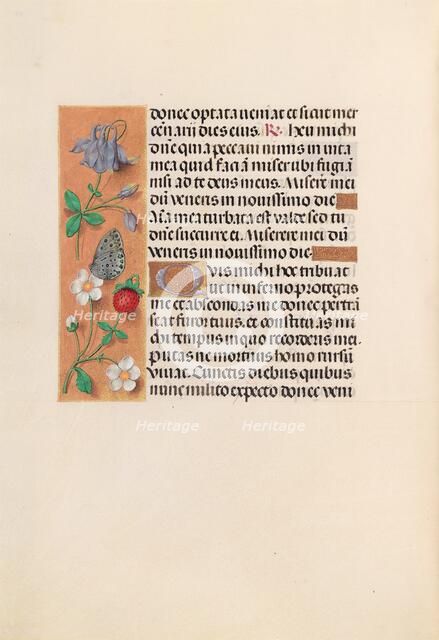 donec optata veniat et sicut mer
cenarii dies eius. R. heu michi
dñe quia peccavi nimis in vita
mea quid faciã miser ubi fugiã
nisi ad te deus meus. Miserere mei
dũ veneris in novissimo die
Aĩa mea turbata est valde sed tu
dñe succurre ei. Miserere mei dũ
veneris in novissimo die.
Quis michi hoc tribuat
ut in inferno protegas
me et abscondas me donec pertrã
seat furor tuus. et constituas mi
chi tempus in quo recorderis mei.
putas ne mortuus homo rursũ
vivat. Cunctis diebus quibus
nunc milito expecto donec veni
Heritage
Heritage
Heritage
Heritage
Heritage
Heritage